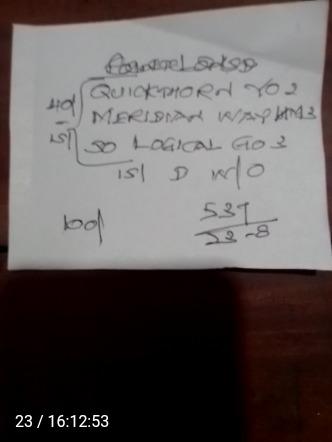 40/ QUICKTHORN YO 2
MERIDIAN WAY HM3
15/ SO LOGICAL GO 3
15/ D W/O
100/ 539
23-8
23 / 16:12:53